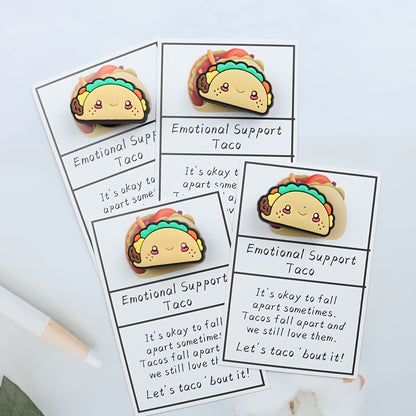 Emotional Support
Taco
It's okay to
apart some
Emotional Support
Taco
It's okay to fall
apart sometimes.
Tacos fall apart and
Emotional Support
Taco
It's okay to fall
apart sometimes.
Tacos fall apart
we still love them.
Let's taco 'bout it!
Emotional Support
Taco
It's okay to fall
apart sometimes.
Tacos fall apart and
we still love them.
Let's taco 'bout it!